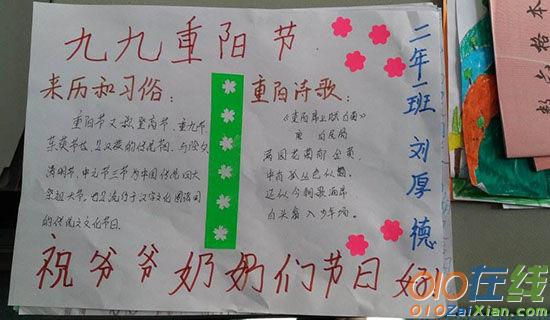 九九重阳节
来历和习俗:
重阳节又称登高节、重九节、
茱萸节
清明节、中元节三节 中国传统四大
祭祖大节。也是流行于汉字文化圈诸国
的传统文化节日。
重阳诗歌:
唐
满园花菊郁金黄,
中有孤丛色似霜。
还似今朝歌酒席
白头翁入少年场。
二年一班 刘厚德
祝爷爷奶奶们节日好
数学格本
010在线
010ZaiXian.com